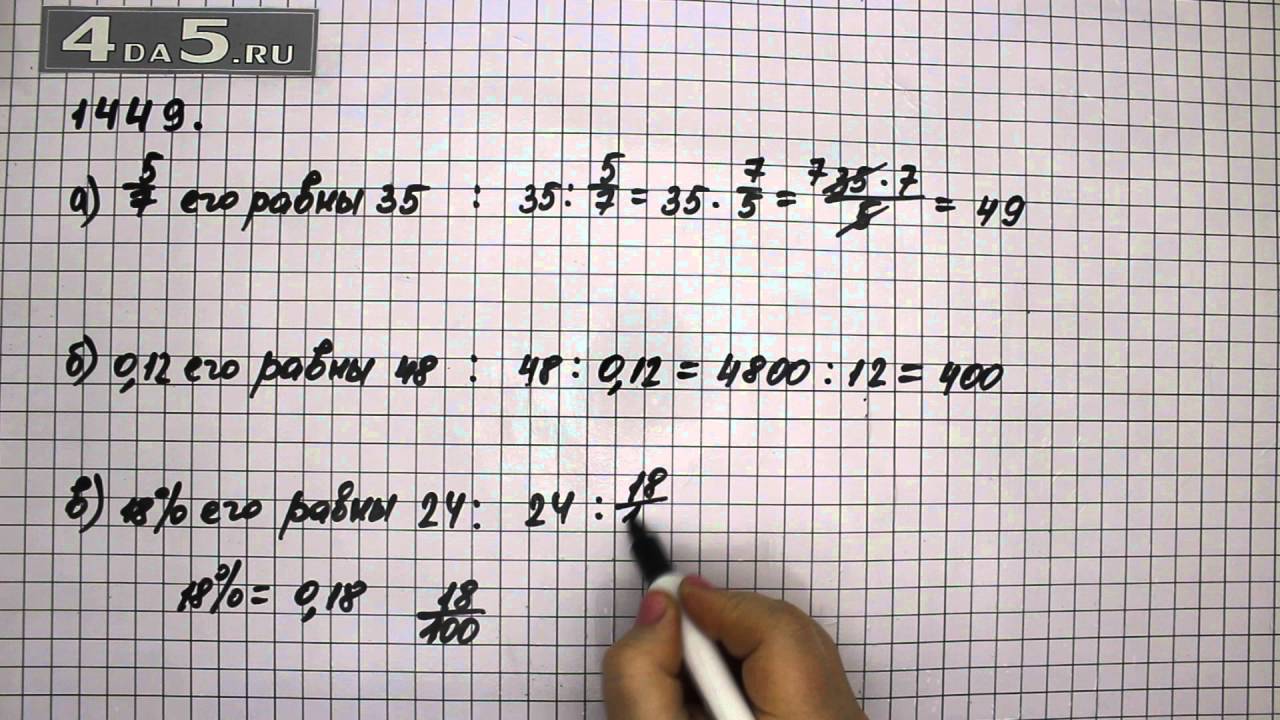 4DA5.RU
1449.
а) 5/7 его равны 35 : 35 : 5/7 = 35 · 7/5 = 7 35 · 7/5 = 49
б) 0,12 его равны 48 : 48 : 0,12 = 4800 : 12 = 400
в) 18% его равны 24 : 24 : 18/1
18% = 0,18 18/100